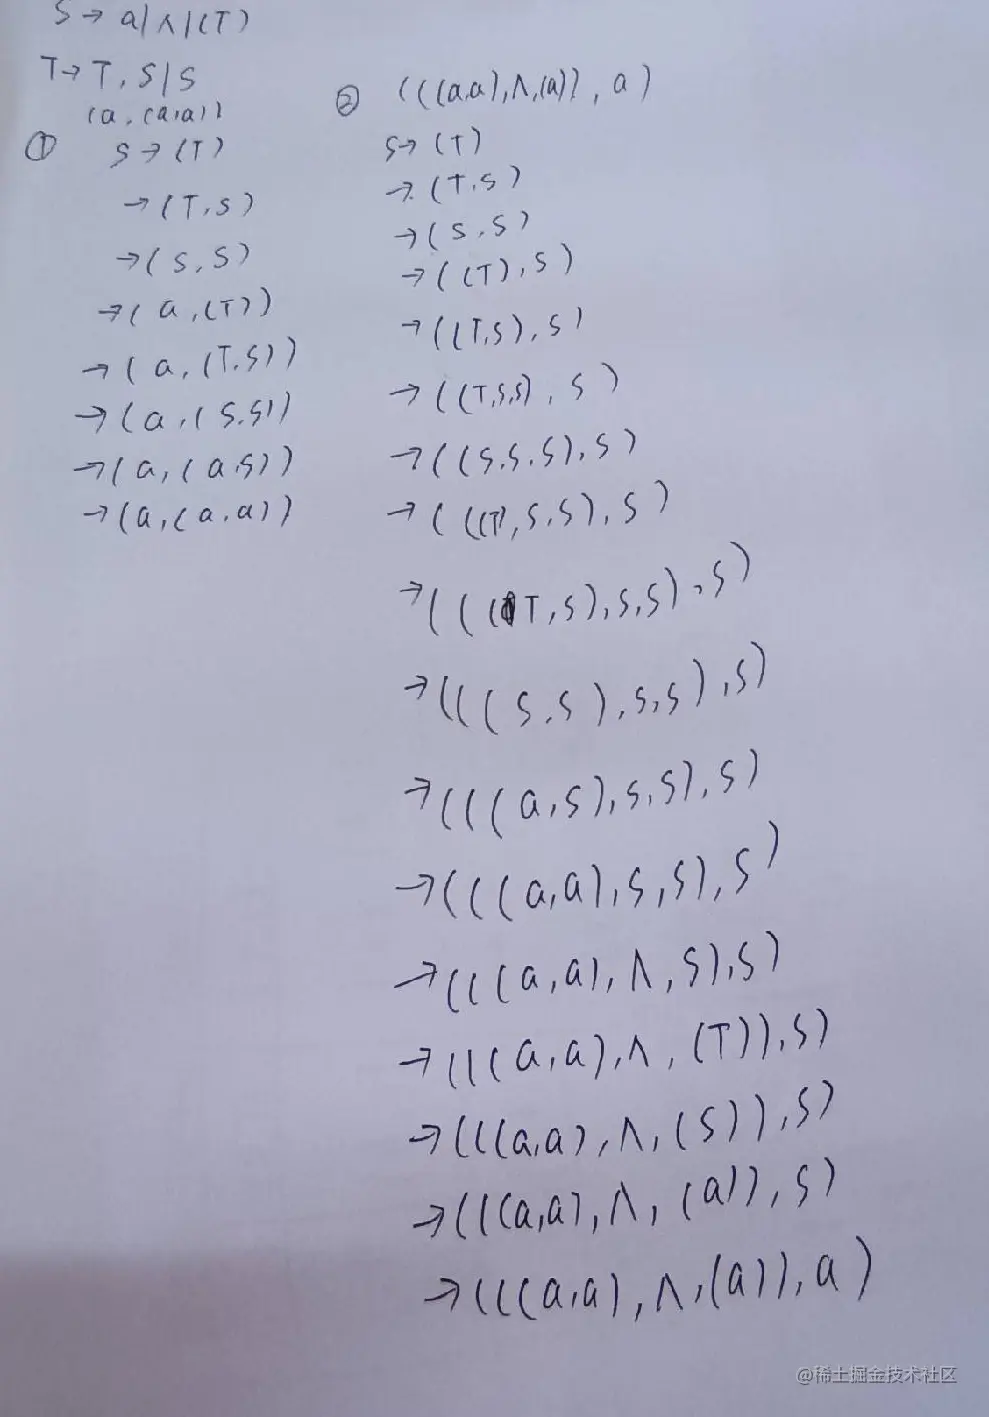 S → a|∧|(T)
T → T,S|S
(a,(a,a))
① S → (T)
→ (T,S)
→ (S,S)
→ (a,(T))
→ (a,(T,S))
→ (a,(S,S))
→ (a,(a,S))
→ (a,(a,a))
② (((a,a),∧,(a)),a)
S → (T)
→ (T,S)
→ (S,S)
→ ((T),S)
→ ((T,S),S)
→ ((T,S,S),S)
→ ((S,S,S),S)
→ (((T),S,S),S)
→ (((T,S),S,S),S)
→ (((S,S),S,S),S)
→ (((a,S),S,S),S)
→ (((a,a),S,S),S)
→ (((a,a),∧,S),S)
→ (((a,a),∧,(T)),S)
→ (((a,a),∧,(S)),S)
→ (((a,a),∧,(a)),S)
→ (((a,a),∧,(a)),a)
@稀土掘金技术社区